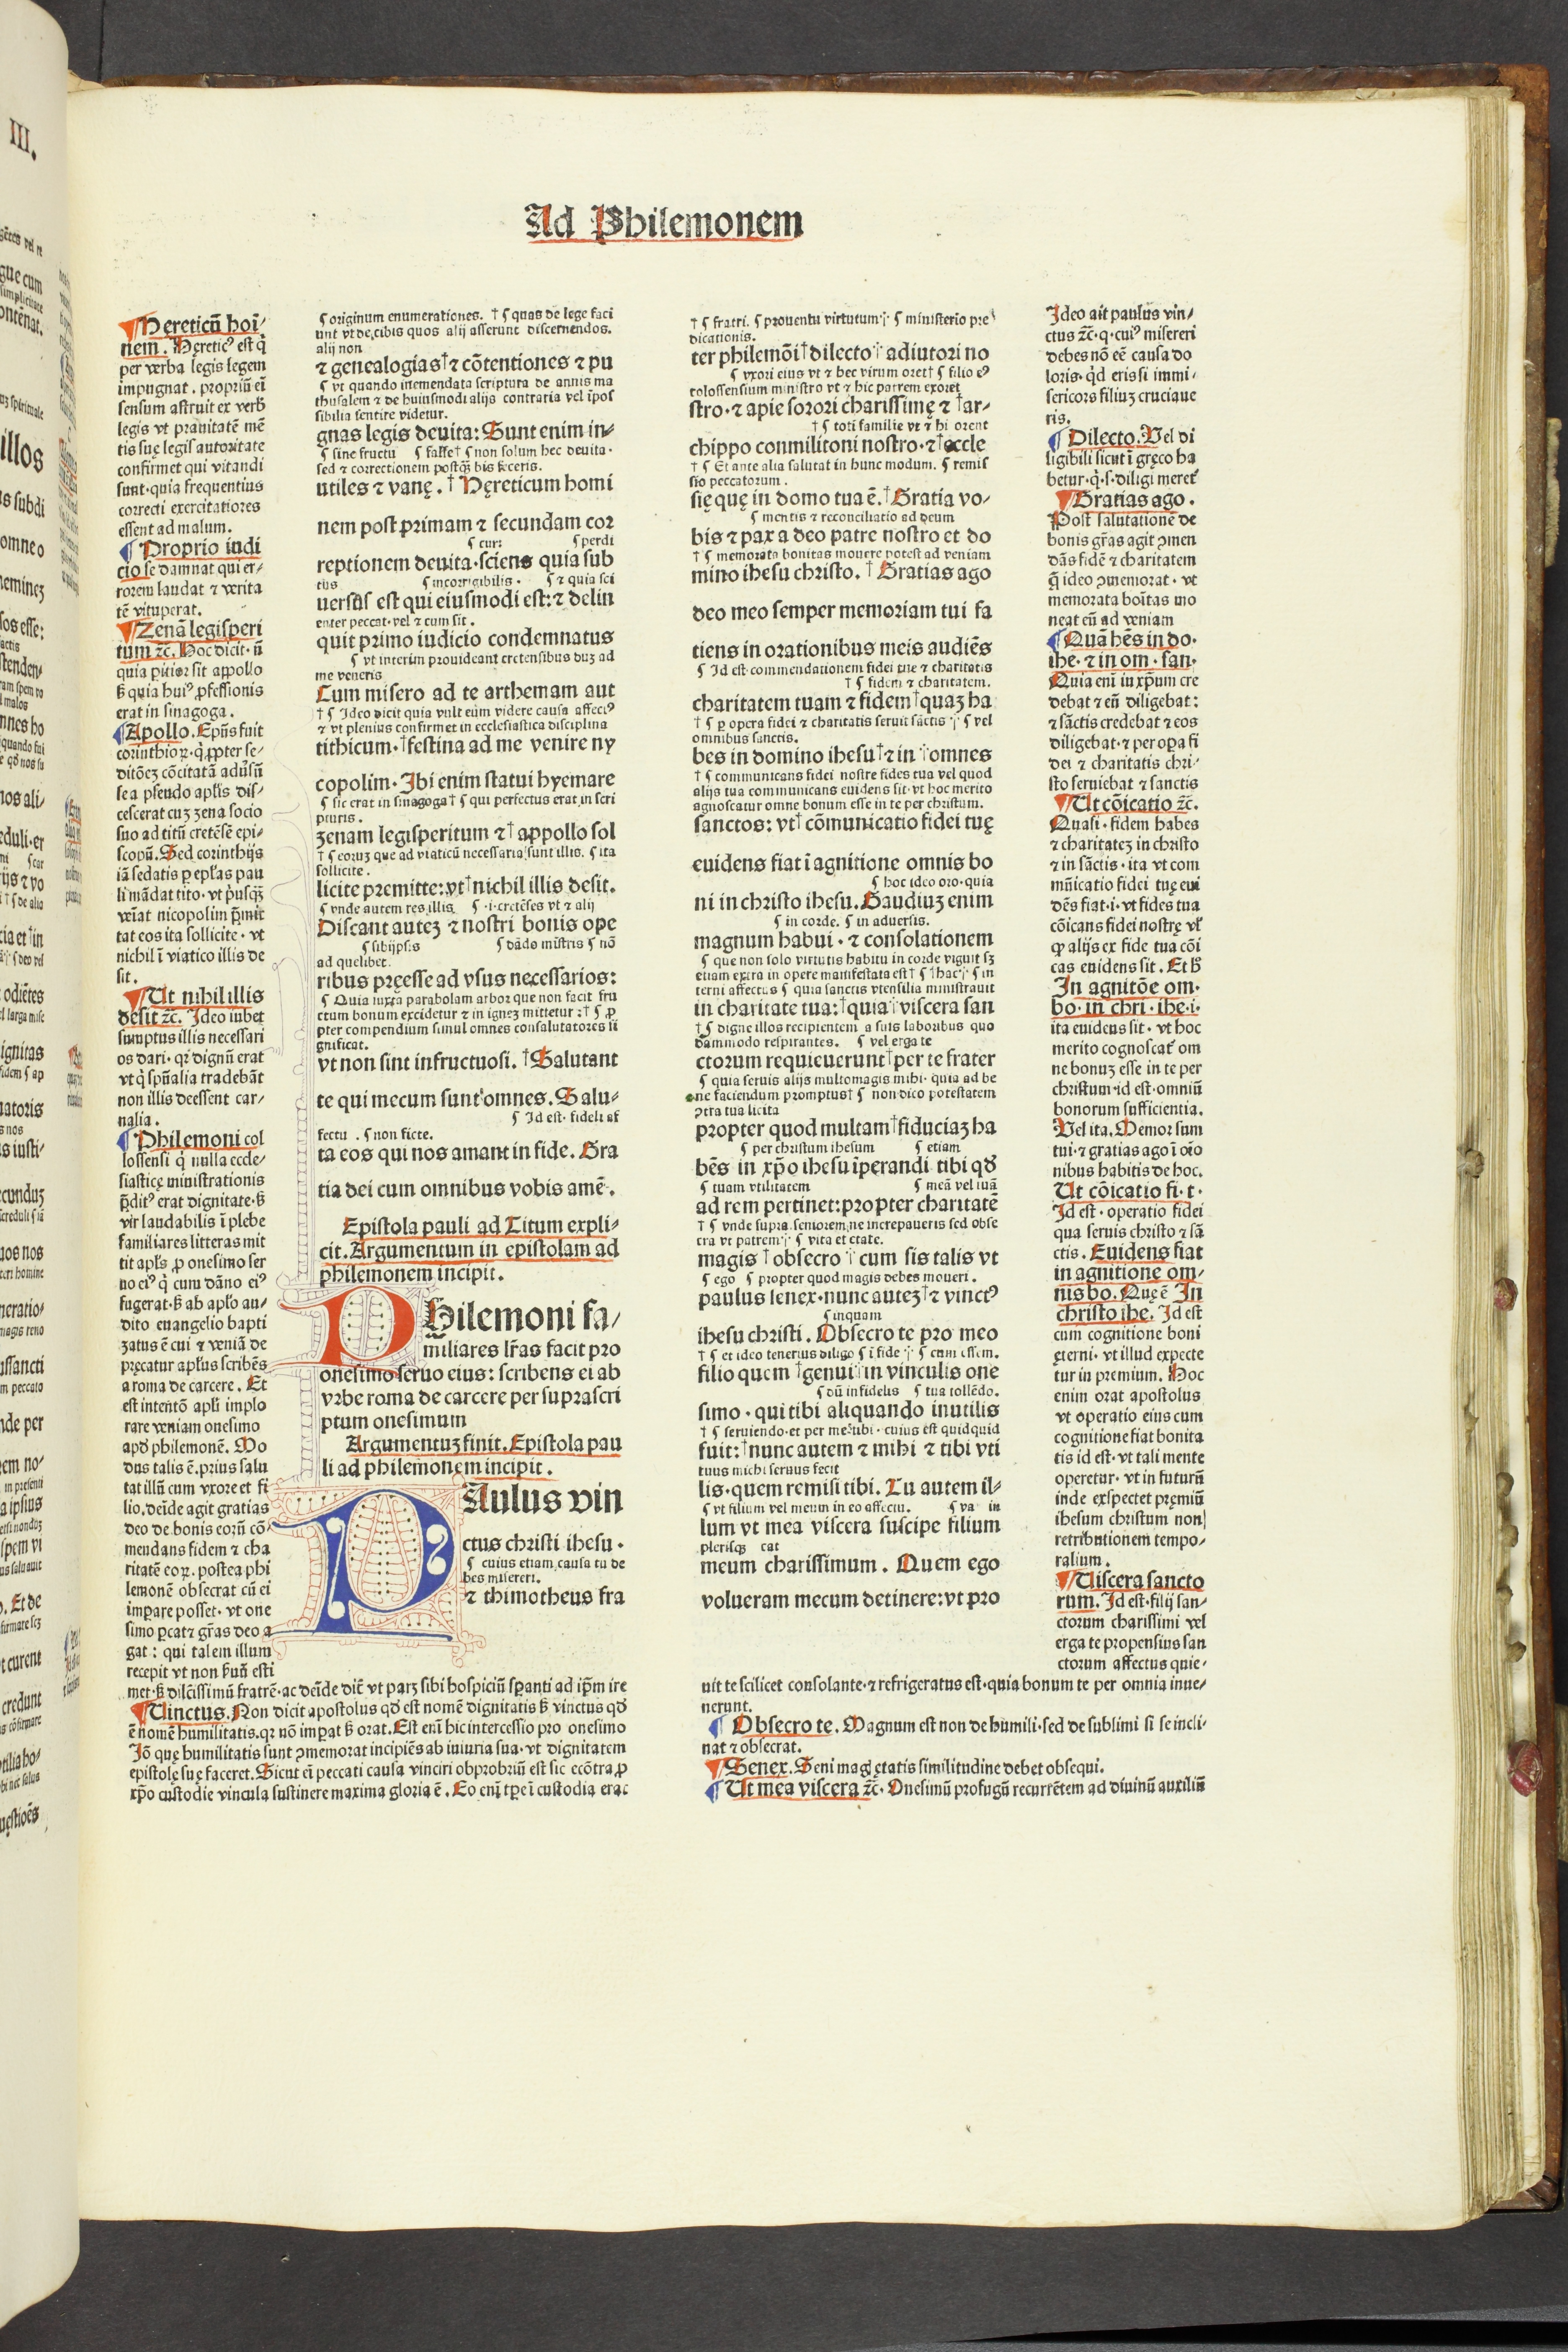 Ad Philemonem
Hereticū hoī⸗
nem. Hęreticꝰ est q̇
per verba legis legem
impugnat. propriū eī
sensum astruit ex verb̄
legis vt prauitatē mē
tis suę legis autoritate
confirmet qui vitandi
sunt·quia frequentius
correcti exercitatiores
essent ad malum.
Proprio iudi
cio se damnat qui er⸗
rorem laudat ⁊ verita
tē vituperat.
Zenā legisperi
tum ⁊c̄. Hoc dicit·ū
quia pitior sit appollo
ꝫ quia huiꝰ ꝓfessionis
erat in sinagoga.
Apollo. Epūs fuit
corinthioꝝ·q̇ ꝓpter se⸗
ditōeꝫ cōcitatā aduſū
se a pseudo aplīs dis⸗
cescerat cuꝫ zena socio
suo ad titū cretēsē epi⸗
scopū. Sed corinthijs
iā sedatis p eplās pau
li mādat tito·vt pusq̄ꝫ
veīat nicopolim p̄mit
tat eos ita sollicite·vt
nichil ī viatico illis de
sit.
Ut nihil illis
desit ⁊c̄. Ideo iubet
sumptus illis necessari
os dari·qꝛ dignū erat
vt q̇ spūalia tradebāt
non illis deessent car⸗
nalia.
Philemoni col
lossensi q̇ nulla eccle⸗
siasticę ministrationis
p̄ditꝰ erat dignitate·ꝫ
vir laudabilis ī plebe
familiares litteras mit
tit aplūs ꝓ onesimo ser
uo eiꝰ q̇ cum dāno eiꝰ
fugerat·ꝫ ab aplō au⸗
dito euangelio bapti
zatus ē cui ⁊ veniā de
pręcatur aplūs scribēs
a roma de carcere. Et
est intentō aplī implo
rare veniam onesimo
apd̄ philemonē. Mo
dus talis ē.prius salu
tat illū cum vxore et fi
lio.deīde agit gratias
deo de bonis eorū cō⸗
mendans fidem ⁊ cha
ritatē eoꝝ. postea phi
lemonē obsecrat cū ei
impare posset·vt one
simo pcat⁊ gr̄as deo a
gat: qui talem illum
recepit vt non ꝫuū esti
met·ꝫ dilcissimū fratrē·ac deīde dic̄ vt parꝫ sibi hospiciū spanti ad ip̄m ire
Uinctus. Non dicit apostolus qd̄ est nomē dignitatis ꝫ vinctus qd̄
ē nomē humilitatis.qꝛ nō impat ꝫ orat. Est enī hic intercessio pro onesimo
Iō quę humilitatis sunt ꝯmemorat incipiēs ab iniuria sua·vt dignitatem
epistolę suę faceret. Sicut eī peccati causa vinciri obprobriū est sic ecōtra ꝓ
xp̄o custodie vincula sustinere maxima gloria ē. Eo enī tpe ī custodia erat
¶ originum enumerationes. † ¶ quas de lege faci
unt vt de cibis quos alij asserunt discernendos.
alij non
⁊ genealogias†⁊ cōtentiones ⁊ pu
¶ vt quando intemendata scriptura de annis ma
thusalem ⁊ de huiusmodi alijs contraria vel īpos
sibilia sentire videtur.
gnas legis deuita: Sunt enim in⸗
¶ sine fructu ¶ false† ¶ non solum hec deuita·
sed ⁊ correctionem postq̄ꝫ his feceris.
utiles ⁊ vanę. † Hęreticum homi
nem post primam ⁊ secundam cor
¶ cura ¶ perdi
reptionem deuita·sciens quia sub
tus ¶ incorrigibilis. ¶ ⁊ quia sci
uersus est qui eiusmodi est:⁊ delin
enter peccat·vel ⁊ cum sit.
quit primo iudicio condemnatus
¶ vt interim prouideant cretensibus duꝫ ad
me veneris
Cum misero ad te arthemam aut
† ¶ Ideo dicit quia vult eum videre causa affectꝰ
⁊ vt plenius confirmet in ecclesiastica disciplina
tithicum·†festina ad me venire ny
copolim·Ibi enim statui hyemare
¶ sic erat in sinagoga† ¶ qui perfectus erat in scri
pturis.
zenam legisperitum ⁊† appollo sol
† ¶ eoruꝫ que ad viaticū necessaria sunt illis. ¶ ita
sollicite.
licite premitte:vt†nichil illis desit.
¶ vnde autem res illis ¶ ·i·cretēses vt ⁊ alij
Discant auteꝫ ⁊ nostri bonis ope
¶ sibijpsis ¶ dādo mīstris ¶ nō
ad quelibet.
ribus pręesse ad vsus necessarios:
¶ Quia iuxta parabolam arbor que non facit fru
ctum bonum excidetur ⁊ in igneꝫ mittetur:† ¶ ꝓ
pter compendium simul omnes consalutatores si
gnificat.
vt non sint infructuosi. †Salutant
te qui mecum sunt omnes. Salu⸗
¶ Id est·fideli af
fectu. ¶ non ficte.
ta eos qui nos amant in fide. Gra
tia dei cum omnibus vobis amē.
Epistola pauli ad Titum expli⸗
cit. Argumentum in epistolam ad
philemonem incipit.
Philemoni fa⸗
miliares lr̄as facit pro
onesimo seruo eius: scribens ei ab
vrbe roma de carcere per suprascri
ptum onesimum
Argumentuꝫ finit. Epistola pau
li ad philemonem incipit.
PAulus vin
ctus christi ihesu·
¶ cuius etiam causa tu de
bes misereri.
⁊ thimotheus fra
† ¶ fratri. ¶ prouentu virtutum·†· ¶ ministerio pre
dicationis.
ter philemōi†dilecto†adiutori no
¶ vxori eius vt ⁊ hec virum oret† ¶ filio eꝰ
colossensium ministro vt ⁊ hic patrem exoret
stro·⁊ apie sorori charissimę ⁊ †ar⸗
¶ toti familie vt ⁊ hi orent
chippo conmilitoni nostro·⁊†eccle
† ¶ Et ante alia salutat in hunc modum. ¶ remis
sio peccatorum.
się quę in domo tua ē.†Gratia vo⸗
¶ mentis ⁊ reconciliatio ad deum
bis ⁊ pax a deo patre nostro et do
† ¶ memorata bonitas mouere potest ad veniam
mino ihesu christo. † Gratias ago
deo meo semper memoriam tui fa
tiens in orationibus meis audiēs
¶ Id est·commendationem fidei tue ⁊ charitatis
† ¶ fidem ⁊ charitatem.
charitatem tuam ⁊ fidem†quaꝫ ha
† ¶ p opera fidei ⁊ charitatis seruit sāctis·†· ¶ vel
omnibus sanctis.
bes in domino ihesu†⁊ in †omnes
† ¶ communicans fidei nostre fides tua vel quod
alijs tua communicans euidens sit·vt hoc merito
agnoscatur omne bonum esse in te per christum.
sanctos: vt†cōmunicatio fidei tuę
euidens fiat ī agnitione omnis bo
¶ hoc ideo oro·quia
ni in christo ihesu. Gaudiuꝫ enim
¶ in corde. ¶ in aduersis.
magnum habui·⁊ consolationem
¶ que non solo virtutis habitu in corde viguit sꝫ
etiam extra in opere manifestata est† ¶ †hac·†· ¶ in
terni affectus ¶ quia sanctis vtensilia ministrauit
in charitate tua:†quia†viscera san
† ¶ digne illos recipientem a suis laboribus quo
dammodo respirantes. ¶ vel erga te
ctorum requieuerunt†per te frater
¶ quia seruis alijs multomagis mihi·quia ad be
ne faciendum promptus† ¶ non dico potestatem
ꝯtra tua licita
propter quod multam†fiduciaꝫ ha
¶ per christum ihesum ¶ etiam
bēs in xp̄o ihesu īperandi tibi qd̄
¶ tuam vtilitatem ¶ meā vel tuā
ad rem pertinet:propter charitatē
† ¶ vnde supra.seniorem ne increpaueris sed obse
cra vt patrem·†· ¶ vita et etate.
magis †obsecro † cum sis talis vt
¶ ego ¶ propter quod magis debes moueri.
paulus senex·nunc auteꝫ†⁊ vinctꝰ
¶ inquam
ihesu christi. Obsecro te pro meo
† ¶ et ideo tenerius diligo ¶ ī fide·†· ¶ cum essem.
filio quem †genui†in vinculis one
¶ dū infidelis ¶ tua tollēdo.
simo·qui tibi aliquando inutilis
† ¶ seruiendo·et per me tibi·cuius est quidquid
fuit:†nunc autem ⁊ mihi ⁊ tibi vti
tuus michi seruus fecit
lis·quem remisi tibi. Tu autem il⸗
¶ vt filium vel meum in eo affectu. ¶ va in
lum vt mea viscera suscipe filium
plerisqꝫ cat
meum charissimum. Quem ego
volueram mecum detinere:vt pro
Ideo ait paulus vin⸗
ctus ⁊c̄·q·cuiꝰ misereri
debes nō eē causa do
loris·qd̄ eris si immi⸗
sericors filiuꝫ cruciaue
ris.
Dilecto. Vel di
ligibili sicut ī gręco ha
betur·q̇·s·diligi meret᷑
Gratias ago.
Post salutationē de
bonis gr̄as agit ꝯmen
dās fidē ⁊ charitatem
q̄ ideo ꝯmemorat·vt
memorata boītas mo
neat eū ad veniam
Quā hēs in do·
ihe·⁊ in om·san·
Quia enī in xp̄um cre
debat ⁊ eū diligebat:
⁊ sāctis credebat ⁊ eos
diligebat·⁊ per opa fi
dei ⁊ charitatis chri⸗
sto seruiebat ⁊ sanctis
Ut cōicatio ⁊c̄.
Quasi·fidem habes
⁊ charitateꝫ in christo
⁊ in sāctis·ita vt com
mūicatio fidei tuę eui
dēs fiat·i·vt fides tua
cōicans fidei nostrę vł
ꝙ alijs ex fide tua cōi
cas euidens sit. Et h̄
In agnitōe om·
bo·in chri·ihe·i·
ita euidens sit·vt hoc
merito cognoscat᷑ om
ne bonuꝫ esse in te per
christum·id est·omniū
bonorum sufficientia.
Vel ita. Memor sum
tui·⁊ gratias ago ī orō
nibus habitis de hoc.
Ut cōicatio fi·t·
Id est·operatio fidei
qua seruis christo ⁊ sā
ctis. Euidens fiat
in agnitione om⸗
nis bo. Quę ē In
christo ihe. Id est
cum cognitione boni
ęterni·vt illud expecte
tur in premium. Hoc
enim orat apostolus
vt operatio eius cum
cognitione fiat bonita
tis id est·vt tali mente
operetur·vt in futurū
inde exspectet pręmiū
ihesum christum non
retributionem tempo⸗
ralium.
Uiscera sancto
rum. Id est·filij san⸗
ctorum charissimi vel
erga te propensius san
ctorum affectus quie⸗
uit te scilicet consolante·⁊ refrigeratus est·quia bonum te per omnia inue⸗
nerunt.
Obsecro te. Magnum est non de humili·sed de sublimi si se incli⸗
nat ⁊ obsecrat.
Senex. Seni magꝭ ętatis similitudine debet obsequi.
Ut mea viscera ⁊c̄. Onesimū profugū recurrētem ad diuinū auxiliū